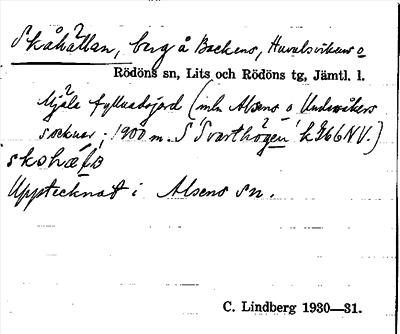 Skåhättan, berg å Backens, Huvulsvikens o
Rödöns sn, Lits och Rödöns tg, Jämtl. l.
Mjäla fyllnadsjord (mln Alsens o Undersåkers
socknar; 1900 m. S Svarthögen k 366 NV.)
Upptecknat i Alsens sn.
C. Lindberg 1930—31.